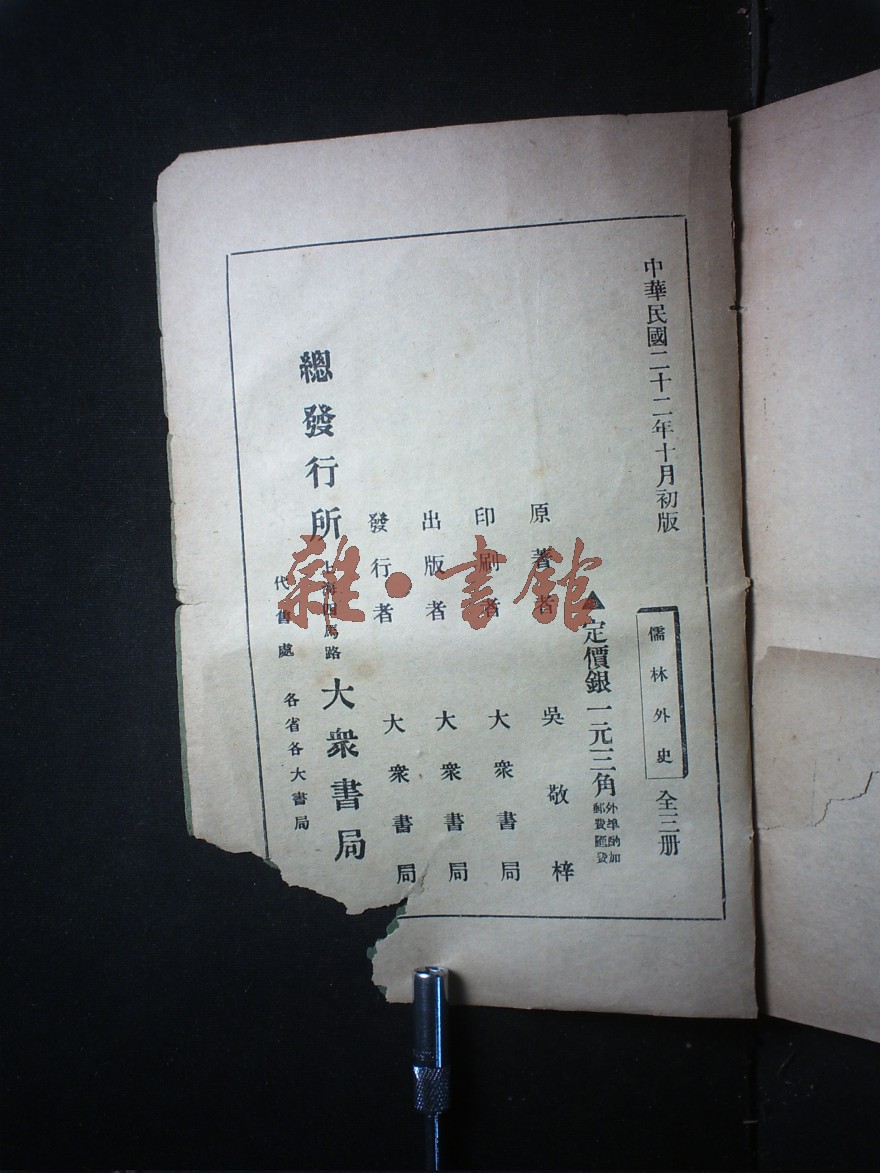 中華民國二十二年十月初版
儒林外史 全三册
▲定價銀一元三角
外埠酌加
郵費匯費
原著者 吳敬梓
印刷者 大衆書局
出版者 大衆書局
發行者 大衆書局
總發行所 上海四馬路 大衆書局
代售處 各省各大書局
雜·書館